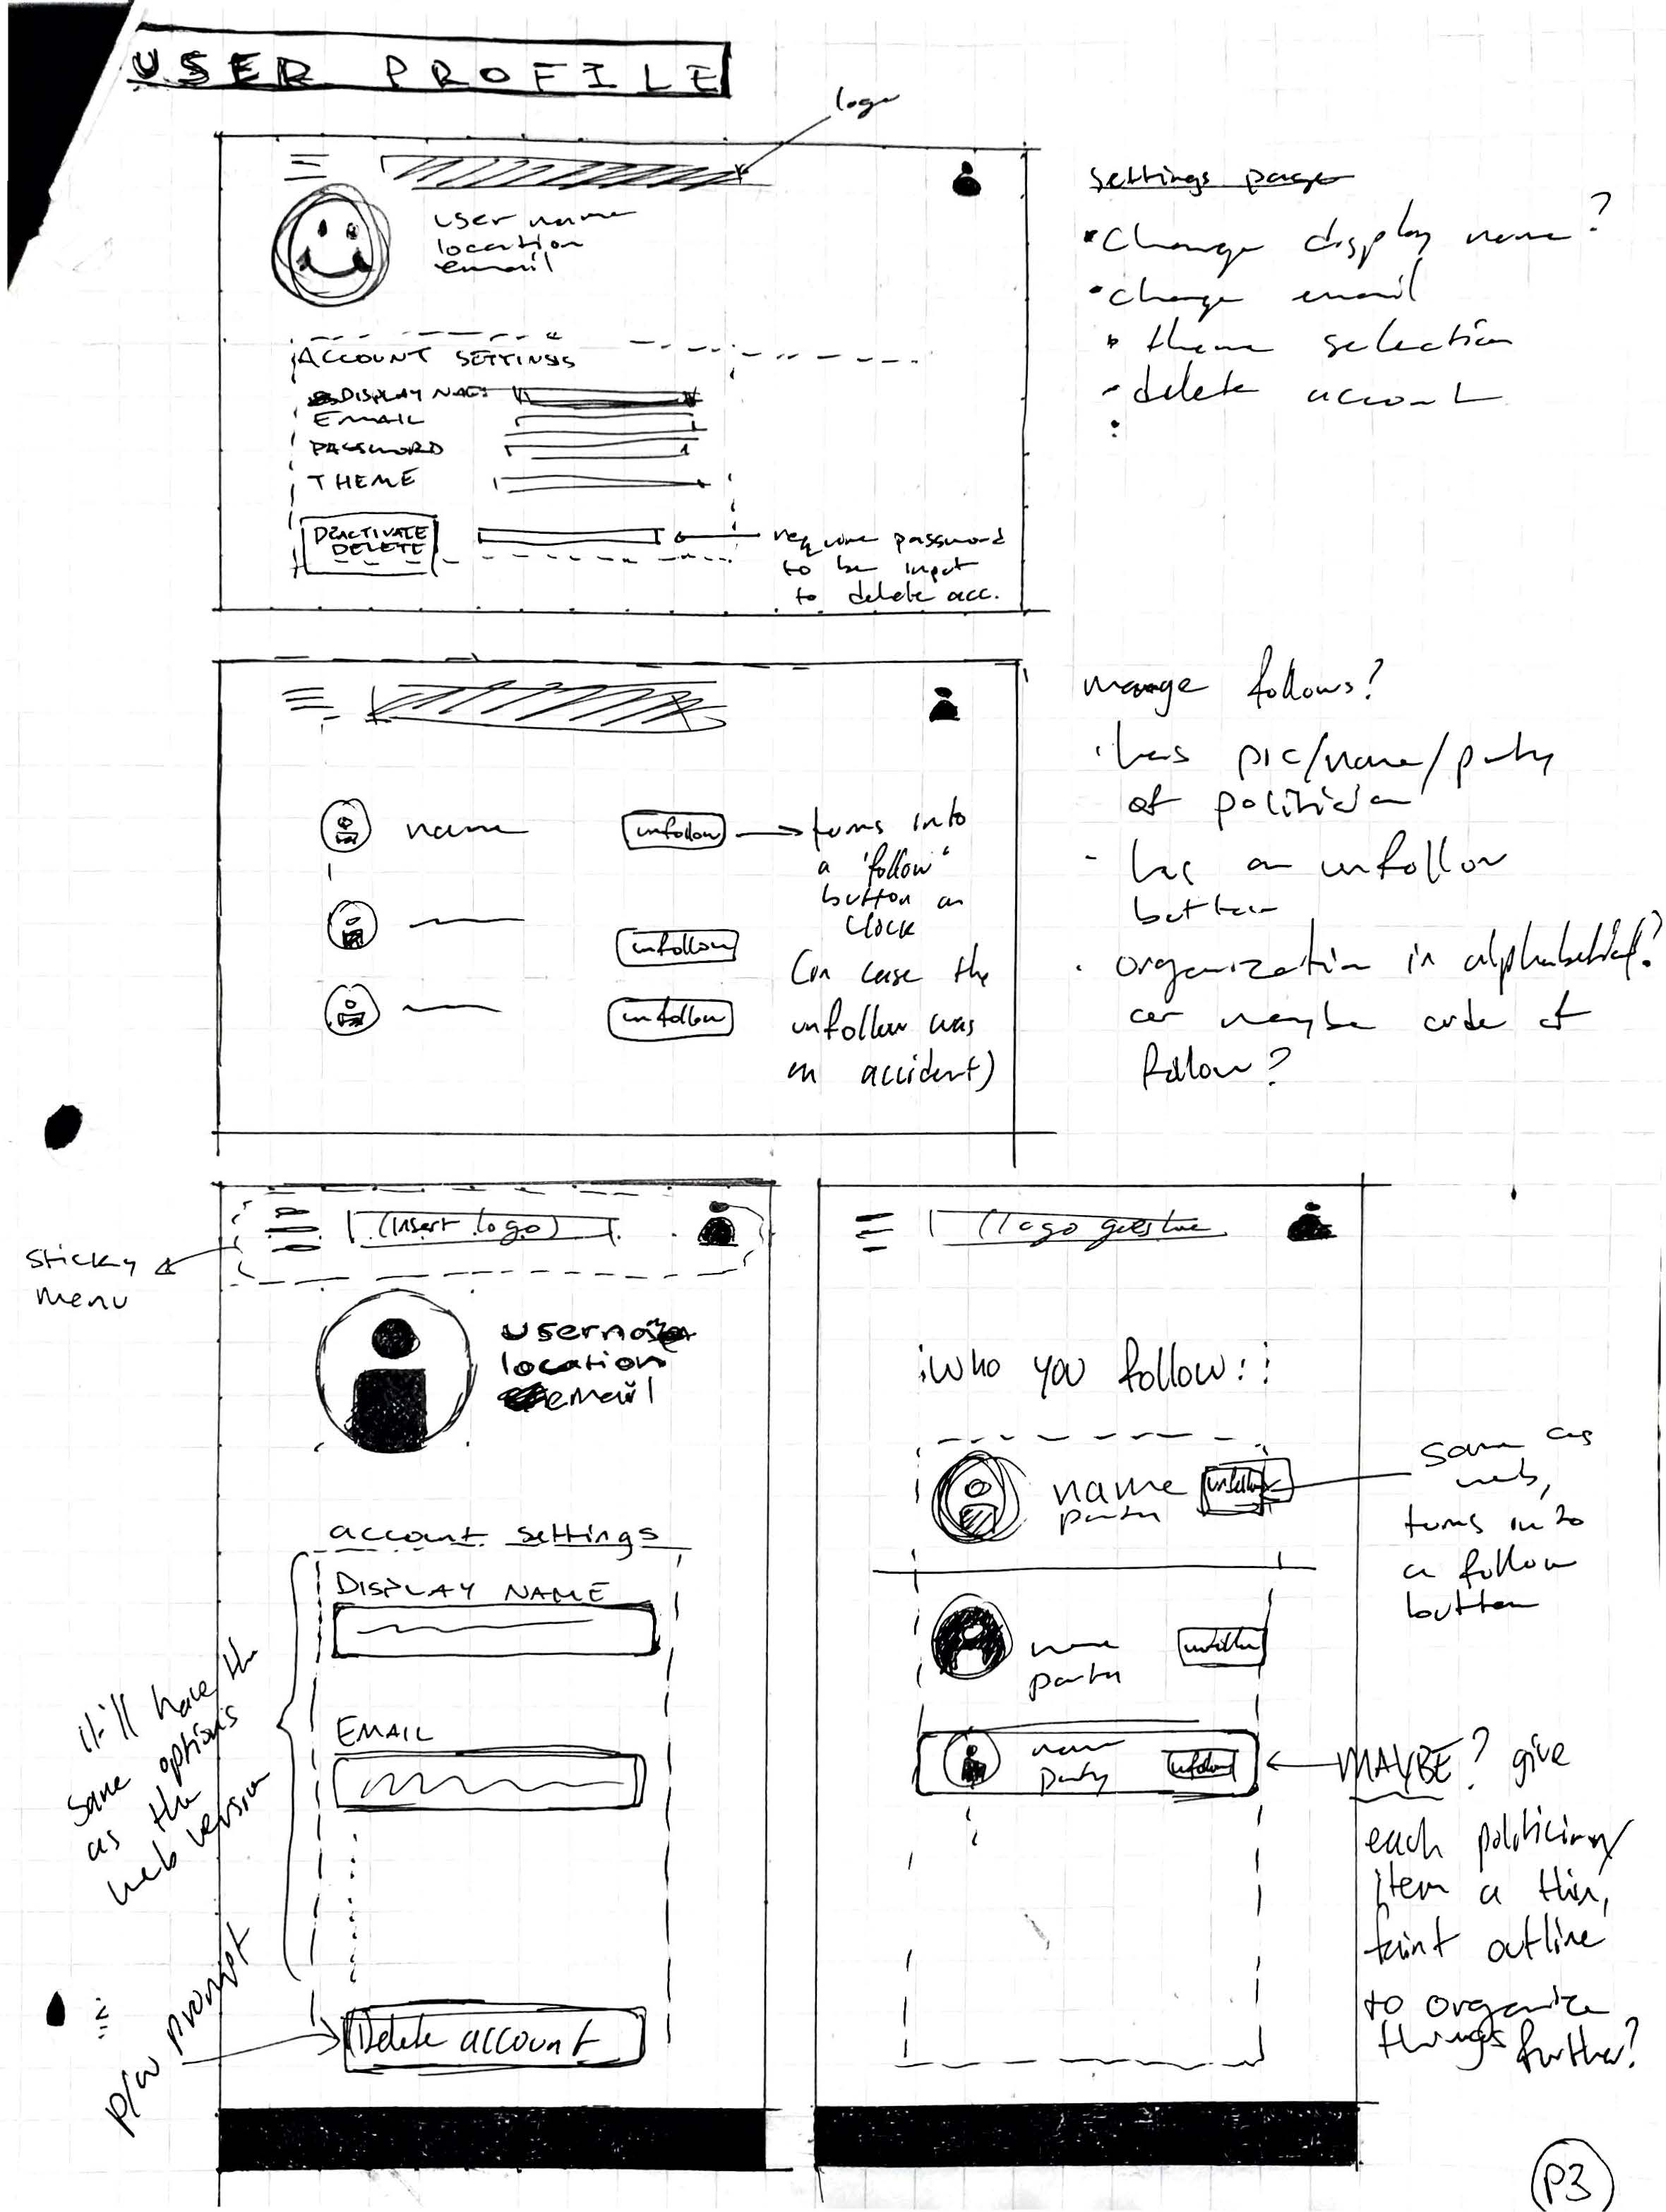 USER PROFILE
logo
user name
location
email
ACCOUNT SETTINGS
DISPLAY NAME
EMAIL
PASSWORD
THEME
DEACTIVATE
DELETE
require password
to be input
to delete acc.
settings page
• Change display name?
• change email
• theme selection
- delete account
name
unfollow
turns into
a "follow"
button on
click
(in case the
unfollow was
an accident)
unfollow
unfollow
manage follows?
· has pic/name/party
of politician
- has an unfollow
button
· organization in alphabetical?
or maybe order of
follow?
sticky
menu
(insert logo)
username
location
email
account settings
DISPLAY NAME
EMAIL
it'll have the
same options
as the
web version
p/w prompt
Delete account
(logo goes here
Who you follow:
name
party
unfollow
same as
web,
turns into
a follow
button
name
party
unfollow
name
party
unfollow
MAYBE? give
each politician/
item a thin,
faint outline
to organize
things further?
P3